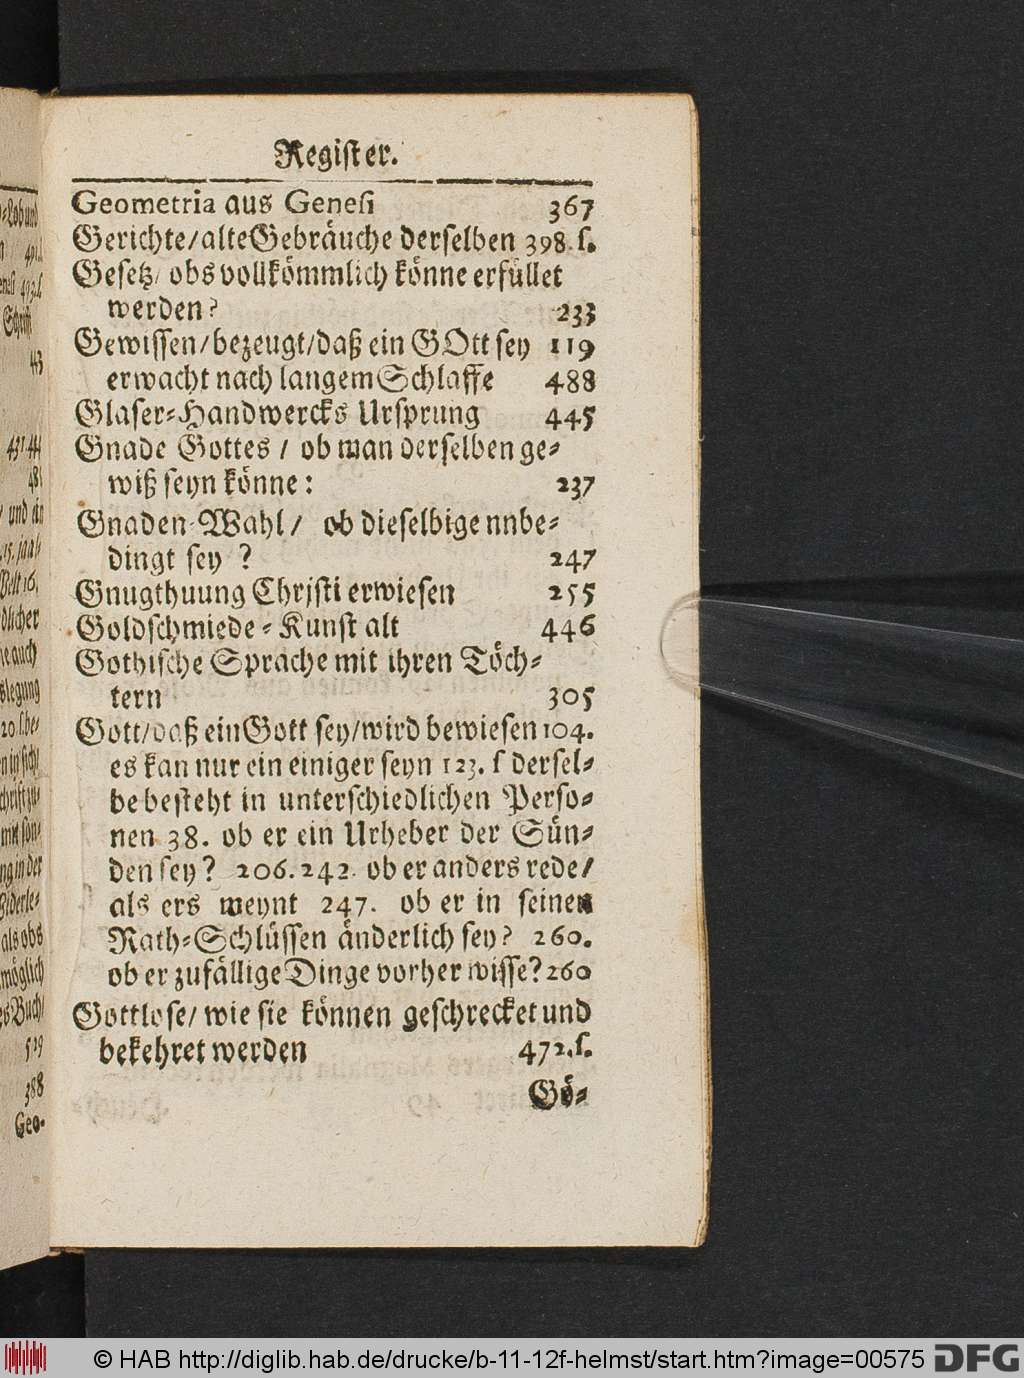 Register.
Geometria aus Genesi 367
Gerichte/alte Gebräuche derselben 398. s.
Gesetz/ obs vollkömmlich könne erfüllet
werden? 233
Gewissen/bezeugt/daß ein GOtt sey 119
erwacht nach langem Schlaffe 488
Glaser-Handwercks Ursprung 445
Gnade Gottes / ob man derselben ge-
wiß seyn könne: 237
Gnaden-Wahl / ob dieselbige nnbe-
dingt sey ? 247
Gnugthuung Christi erwiesen 255
Goldschmiede-Kunst alt 446
Gothische Sprache mit ihren Töch-
tern 305
Gott/daß ein Gott sey/wird bewiesen 104.
es kan nur ein einiger seyn 123. s dersel-
be besteht in unterschiedlichen Perso-
nen 38. ob er ein Urheber der Sün-
den sey? 206. 242. ob er anders rede/
als ers meynt 247. ob er in seinen
Rath-Schlüssen änderlich sey? 260.
ob er zufällige Dinge vorher wisse? 260
Gottlose/ wie sie können geschrecket und
bekehret werden 472. s.
Gö-
519
388
Geo-
© HAB http://diglib.hab.de/drucke/b-11-12f-helmst/start.htm?image=00575
DFG